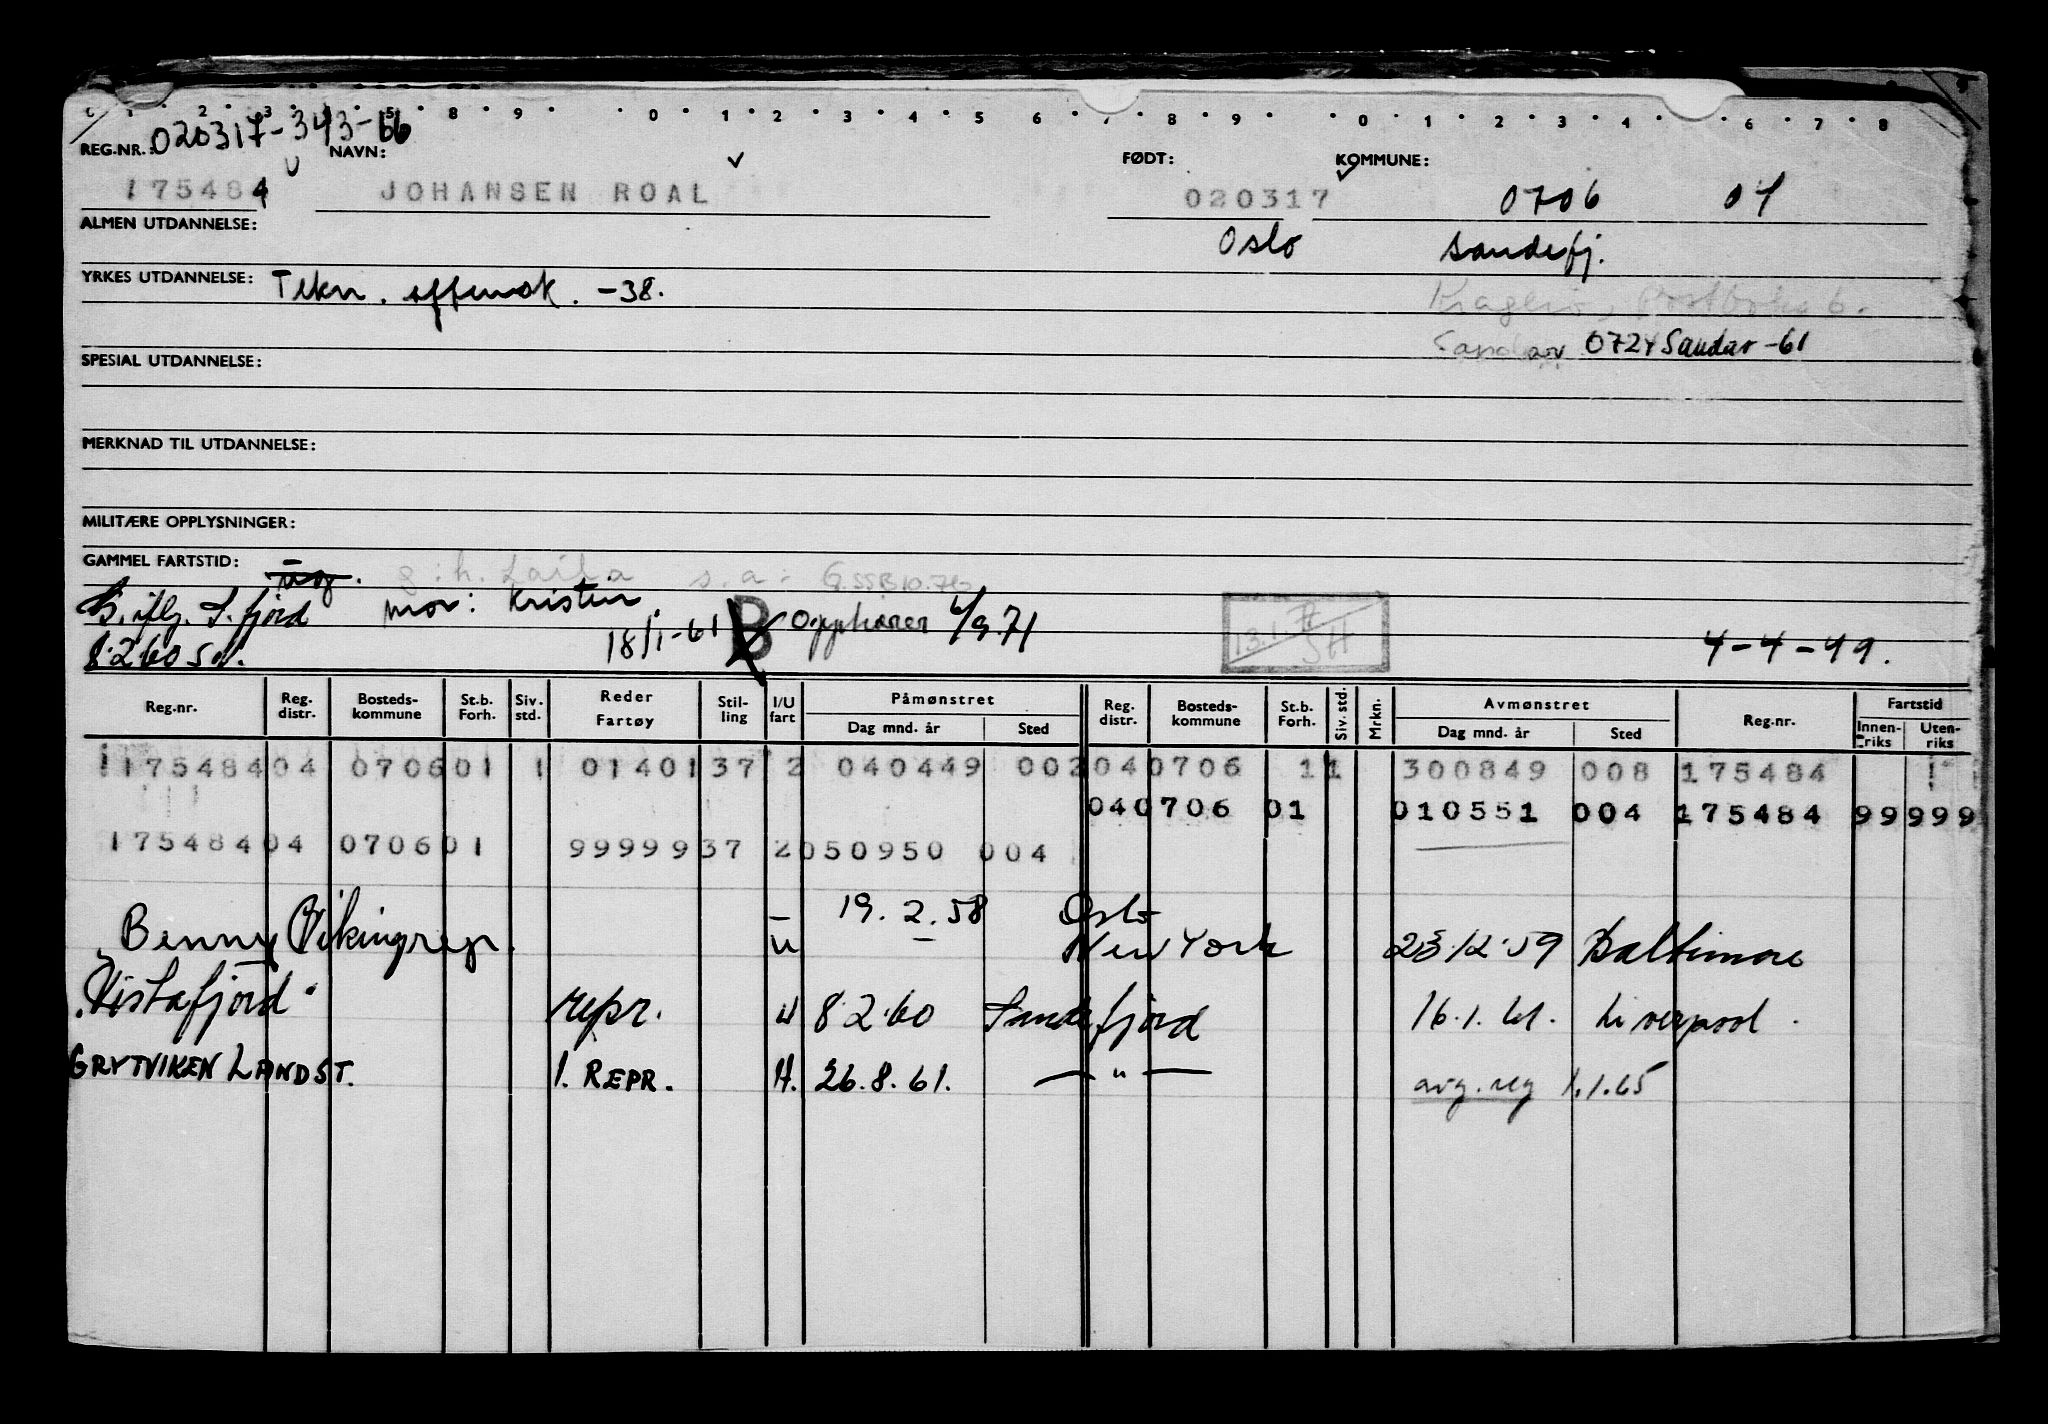 020317-343-66
REG.NR.: NAVN: FØDT: KOMMUNE:
175484 JOHANSEN ROAL 020317 0706 04
ALMEN UTDANNELSE: Oslo Sandefj.
YRKES UTDANNELSE: Tekn. aftensk. -38.
Kragerø, Postboks 6.
Sandar 0724 Sandar -61
SPESIAL UTDANNELSE:
MERKNAD TIL UTDANNELSE:
MILITÆRE OPPLYSNINGER:
GAMMEL FARTSTID: ug. g.h. Laila s.a:
S.fjord mor: Kristin. 18/1-61 B Opphører 6/9 71 13.1.
8.2.60 4-4-49.
Reg.nr. Reg. distr. Bosteds-kommune St.b. Forh. Siv. std. Reder Fartøy Stil-ling I/U fart Påmønstret Reg. distr. Bosteds-kommune St.b. Forh. Siv. std. Mrkn. Avmønstret Reg.nr. Fartstid
Dag mnd. år Sted Dag mnd. år Sted Innen-riks Uten-riks
175484 04 0706 01 1 01401 37 2 040449 002 04 0706 11 300849 008 175484
04 0706 01 010551 004 175484 99 999
175484 04 0706 01 99999 37 2 050950 004
– 19.2.58 Oslo
Benny Vikingrep. u – New York 23.12.59 Baltimore
Vistafjord repr. u 8.2.60 Sandefjord 16.1.61. Liverpool.
GRYTVIKEN LANDST. 1. REPR. H. 26.8.61. — " — avg. reg 1.1.65